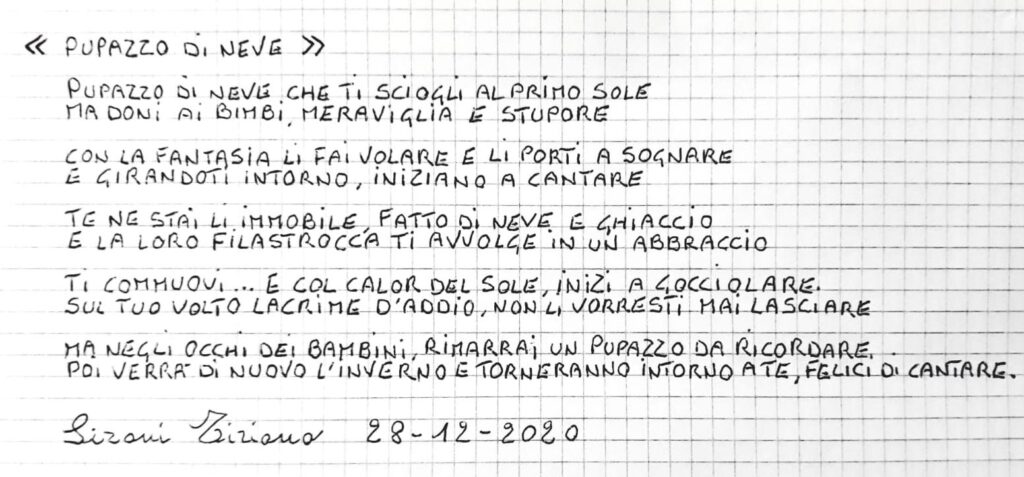 « PUPAZZO Di NEVE »
PUPAZZO Di NEVE CHE Ti SCiOGLi AL PRiMO SOLE
MA DONi Ai BiMBi, MERAViGLiA E STUPORE
CON LA FANTASiA Li FAi VOLARE E Li PORTi A SOGNARE
E GiRANDOTi iNTORNO, iNiZiANO A CANTARE
TE NE STAi Li iMMOBiLE, FATTO Di NEVE E GHiACCiO
E LA LORO FiLASTROCCA Ti AVVOLGE iN UN ABBRACCiO
Ti COMMUOVi... E COL CALOR DEL SOLE, iNiZi A GOCCiOLARE.
SUL TUO VOLTO LACRiME D'ADDiO, NON Li VORRESTi MAi LASCiARE
MA NEGLi OCCHi DEi BAMBiNi, RiMARRAi UN PUPAZZO DA RiCORDARE.
POi VERRA' Di NUOVO L'iNVERNO E TORNERANNO iNTORNO A TE, FELiCi Di CANTARE.
Sironi Tiziana 28-12-2020